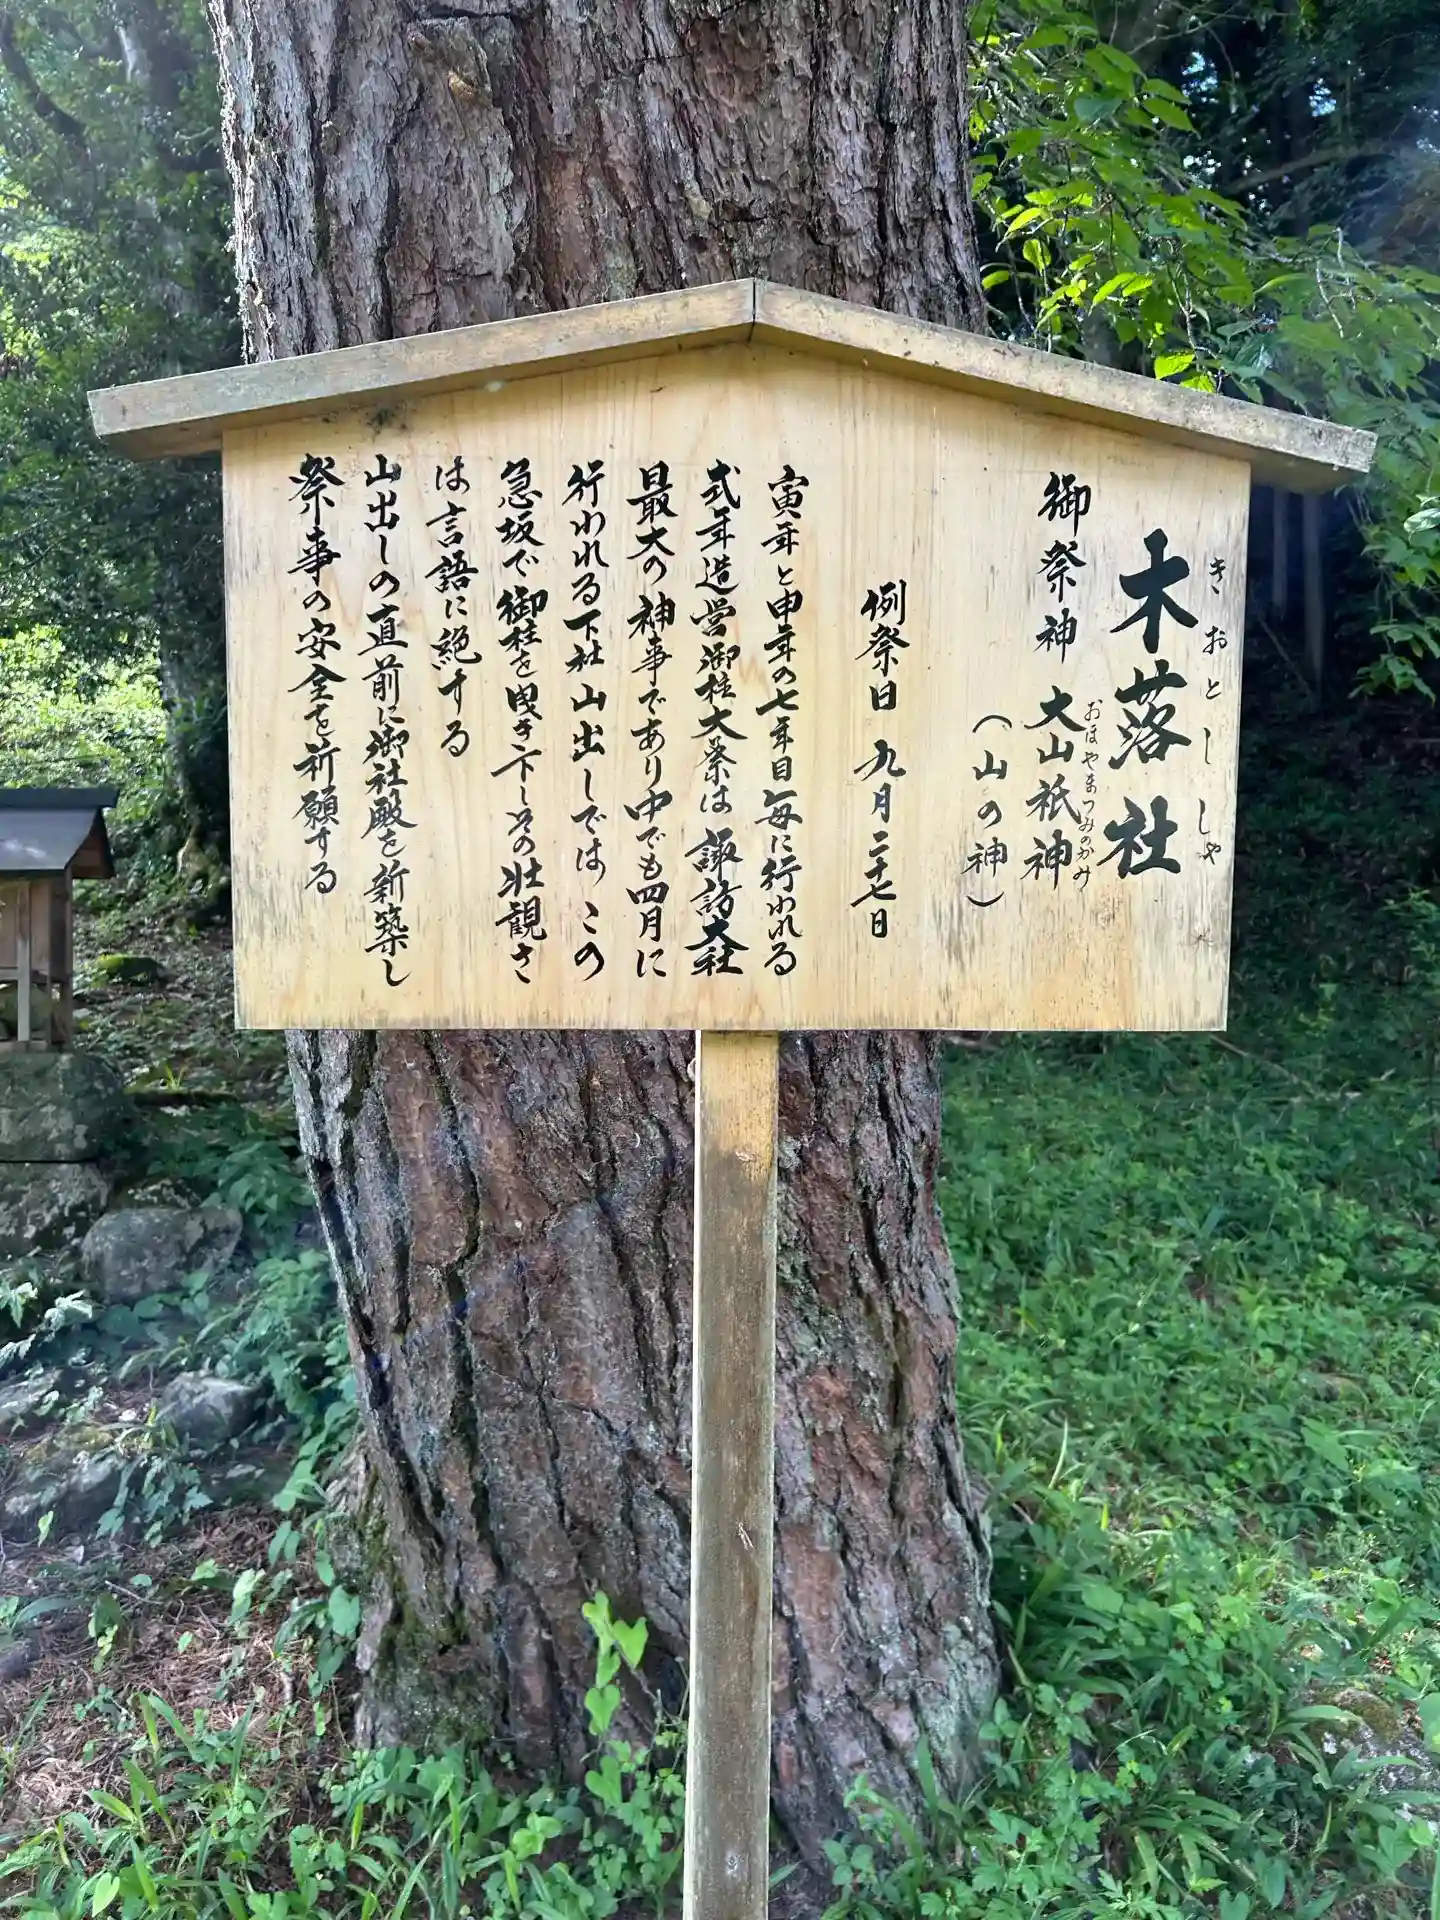 木落社
きおとししゃ
御祭神 大山祇神
おほやまつみのかみ
（山の神）
例祭日 九月二十七日
寅年と申年の七年目毎に行われる
式年造営御柱大祭は諏訪大社
最大の神事であり中でも四月に
行われる下社山出しでは、この
急坂で御柱を曳き下しその壮観さ
は言語に絶する
山出しの直前に御社殿を新築し
祭事の安全を祈願する